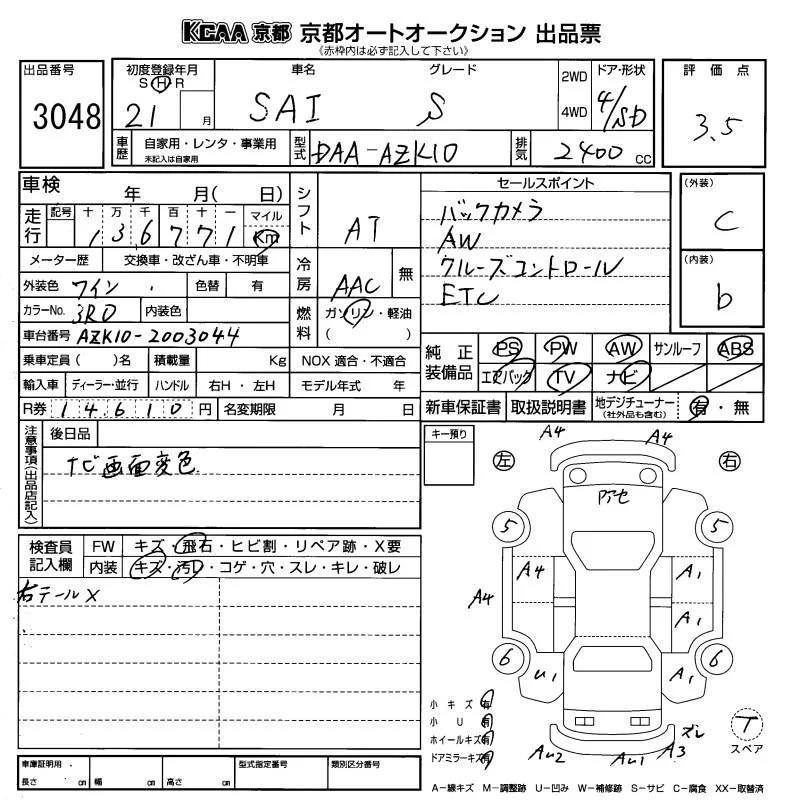 KCAA 京都 京都オートオークション 出品票
(赤枠内は必ず記入して下さい)
出品番号
3048
初度登録年月
S H R
21 月
車名
SAI
グレード
S
2WD
4WD
ドア・形状
4/SD
評価点
3.5
車歴
自家用・レンタ・事業用
未記入は自家用
型式
DAA-AZK10
排気
2400 CC
車検 年 月( 日)
走行
記号 十 万 千 百 十 一 マイル
1 3 6 7 7 1 Km
シフト
AT
セールスポイント
バックカメラ
AW
クルーズコントロール
ETC
(外装)
C
(内装)
b
メーター歴 交換車・改ざん車・不明車
冷房
AAC 無
外装色 ワイン 色替 有
カラーNo. 3R0 内装色
燃料
ガソリン・軽油
( )
車台番号 AZK10-2003044
乗車定員( )名 積載量 Kg NOX適合・不適合
輸入車 ディーラー・並行 ハンドル 右H・左H モデル年式 年
R券 14610円 名変期限 月 日
純正装備品
PS PW AW サンルーフ ABS
エアバック TV ナビ
新車保証書 取扱説明書 地デジチューナー
(社外品も含む)
有・無
注意事項(出品店記入)
後日品
ナビ画面変色
キー預り
検査員記入欄
FW キズ・飛石・ヒビ割・リペア跡・X要
内装 キズ・汚れ・コゲ・穴・スレ・キレ・破レ
右テールX
左
右
A4
A4
5
5
A4
A4
A1
A1
6
U1
A1
6
小キズ有
小U有
ホイールキズ有
ドアミラーキズ有
AU2
AU1
A3
ズレ
T
スペア
車庫証明用
長さ cm 幅 cm 高さ cm
型式指定番号
類別区分番号
A-線キズ M-調整跡 U-凹み W-補修跡 S-サビ C-腐食 XX-取替済